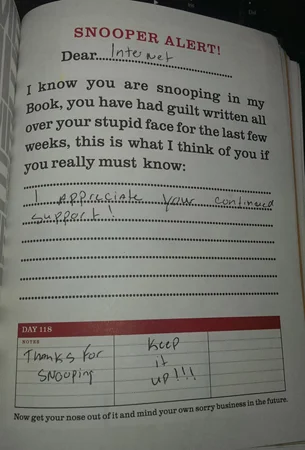 SNOOPER ALERT!
Dear....Internet....
I know you are snooping in my
Book, you have had guilt written all
over your stupid face for the last few
weeks, this is what I think of you if
you really must know:
I Appreciate your continued
support!
DAY 118
NOTES
Thanks for
snooping
Keep
it
up!!!
Now get your nose out of it and mind your own sorry business in the future.